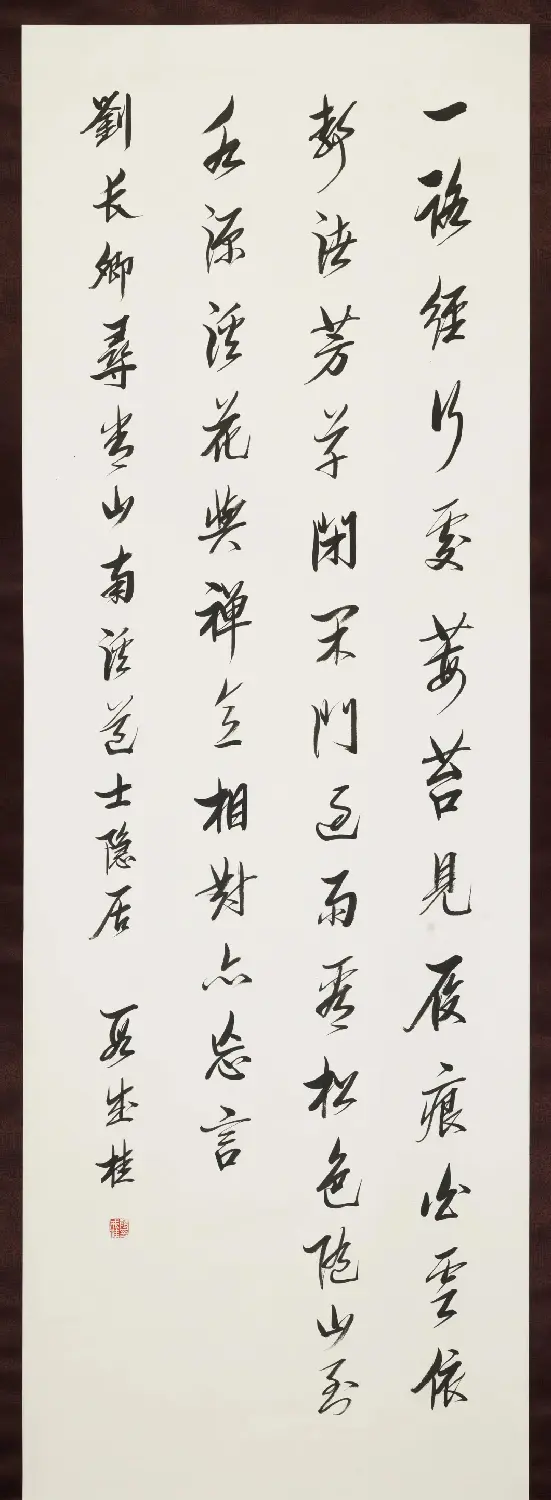 一路經行處莓苔見履痕白雲依
静渚芳草閉閑門過雨看松色隨山到
水源溪花與禅意相對亦忘言
劉长卿尋常山南溪道士隐居 段成桂